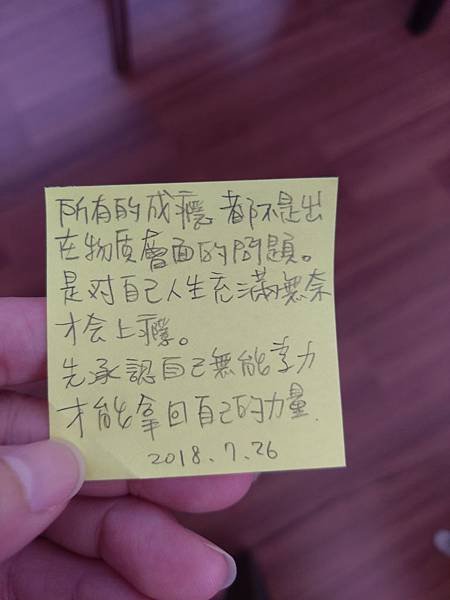 所有的成癮都不是出
在物质層面的問題。
是对自己人生充滿無奈
才会上癮。
先承認自己無能為力
才能拿回自己的力量.
2018.7.26